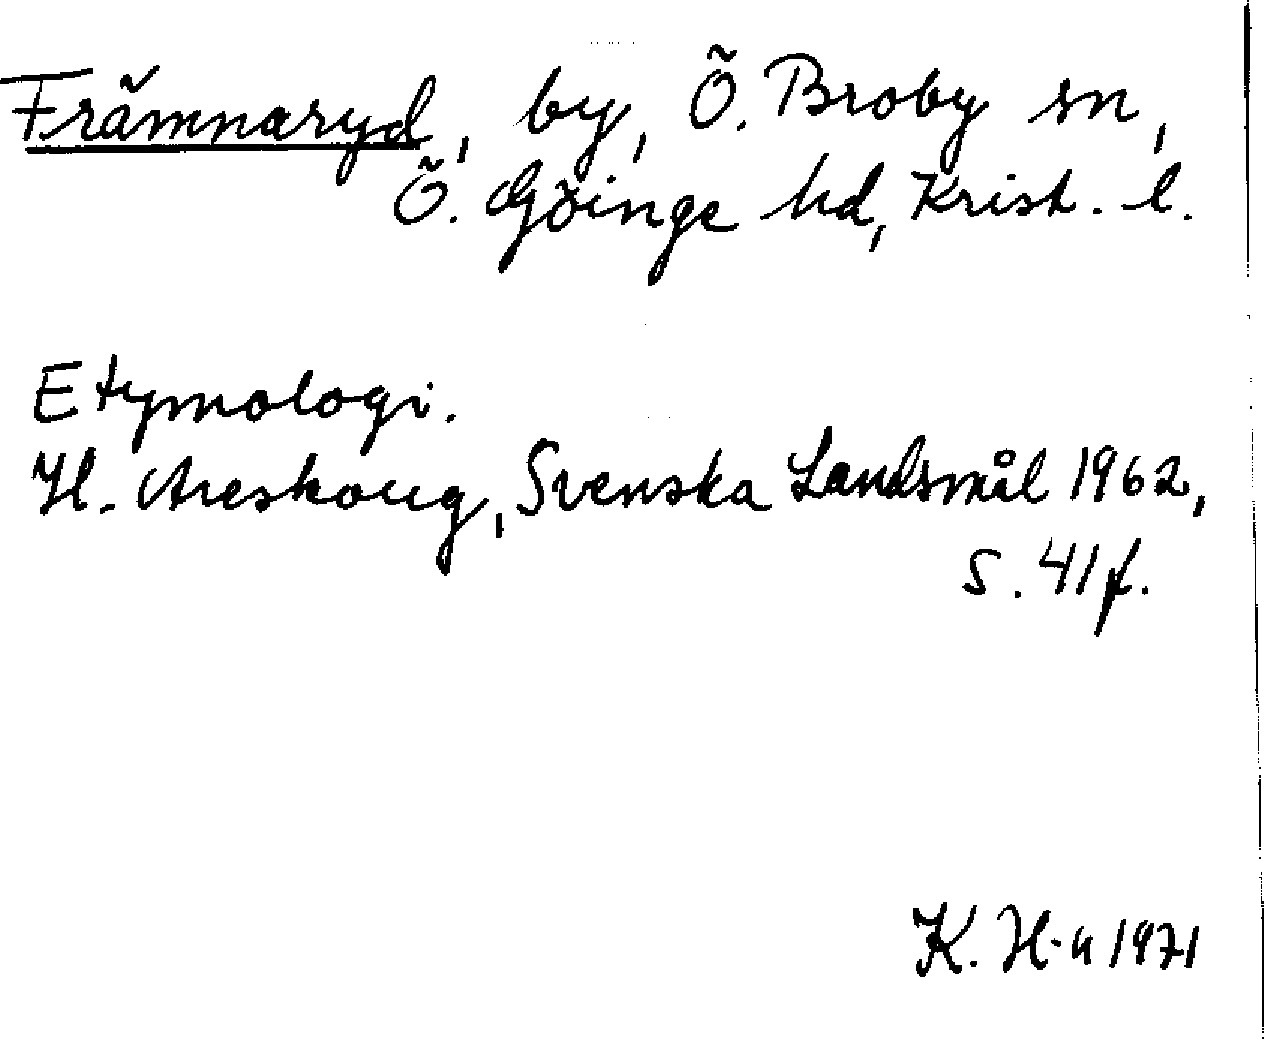 Främnaryd, by, Ö. Broby sn,
Ö. Göinge hd, Krist. l.
Etymologi.
H. Areskoug, Svenska Landsmål 1962,
s. 41 f.
K. H-n 1971